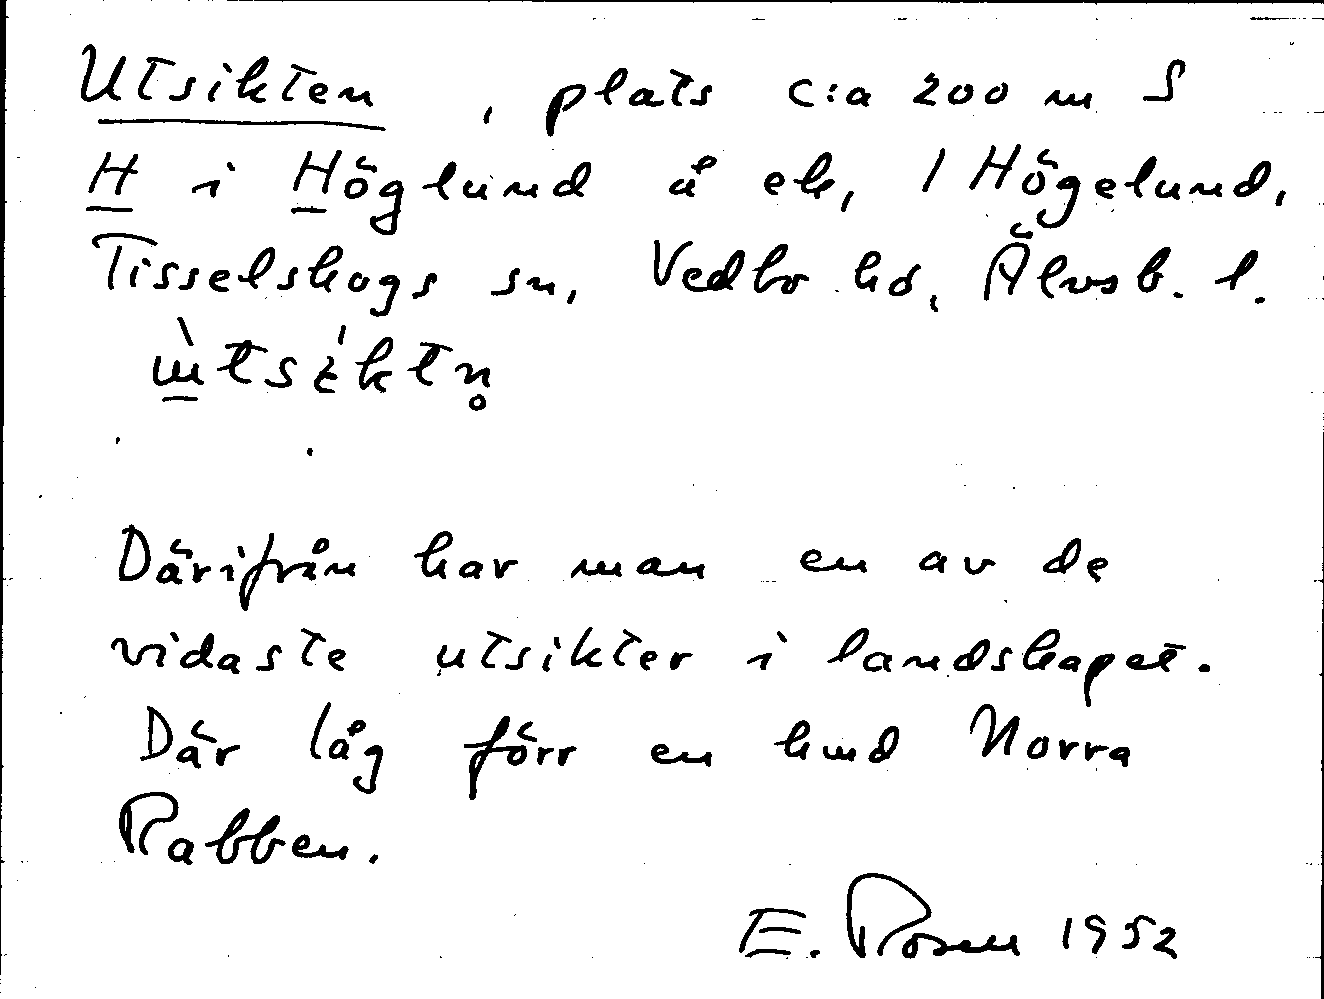 Utsikten, plats c:a 200 m S
H i Höglund å ek, 1 Högelund,
Tisselskogs sn, Vedbo hd, Älvsb. l.
ùtsíktn̥
Därifrån har man en av de
vidaste utsikter i landskapet.
Där låg förr en hmd Norra
Rabben.
E. Rosen 1952